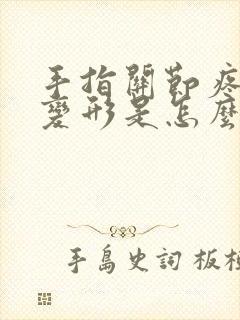 手指關節疼
變形是怎麼
手島史詞 板橋